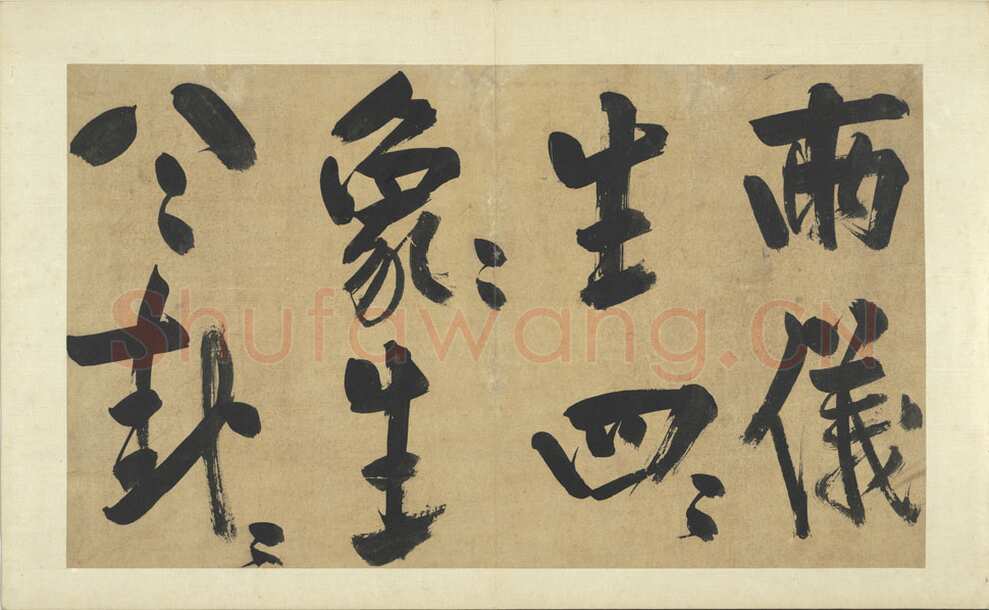 兩儀
生四〻
象〻生
八〻卦〻
Shufawang.CN